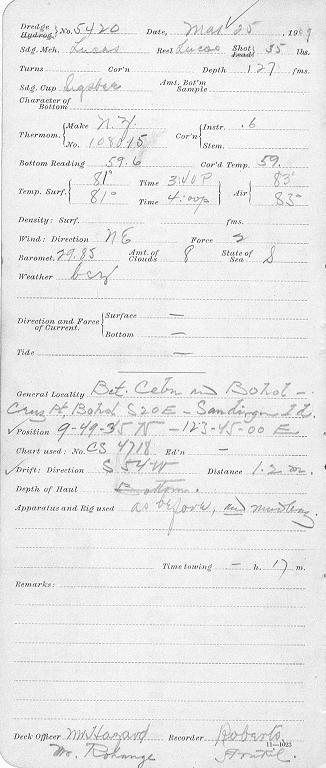 Dredge Hydrog. } No. 5420 Date, Mar 25, 1909
Sdg. Mch. Lucas Reel Lucas Shot Lead } 35 lbs.
Turns Cor'n Depth 127 fms.
Sdg. Cup Sigsbee Amt. Bot'm Sample
Character of Bottom
Thermom. { Make N. Z. No. 108015 Cor'n { Instr. .6 Stem.
Bottom Reading 59.6 Cor'd Temp. 59.
Temp. Surf. { 81° Time 3:40 P Air { 83°
81° Time 4:00 p 83°
Density: Surf. fms.
Wind: Direction NE Force 2
Baromet. 29.85 Amt. of Clouds 8 State of Sea S
Weather bcy
Direction and Force of Current. { Surface —
Bottom —
Tide —
General Locality Bet. Cebu and Bohol —
Cruz Pt, Bohol S 20 E —
✓ Position 9-49-35 N - 123-45-00 E
Chart used: No. CS 4718 Ed'n —
✓ Drift: Direction S 54 W Distance 1.2 m.
Depth of Haul Bottom.
Apparatus and Rig used as before, and mudbag
Time towing — h. 17 m.
Remarks:
Deck Officer Mr Hazard Recorder Roberts
11—1023
Mr.